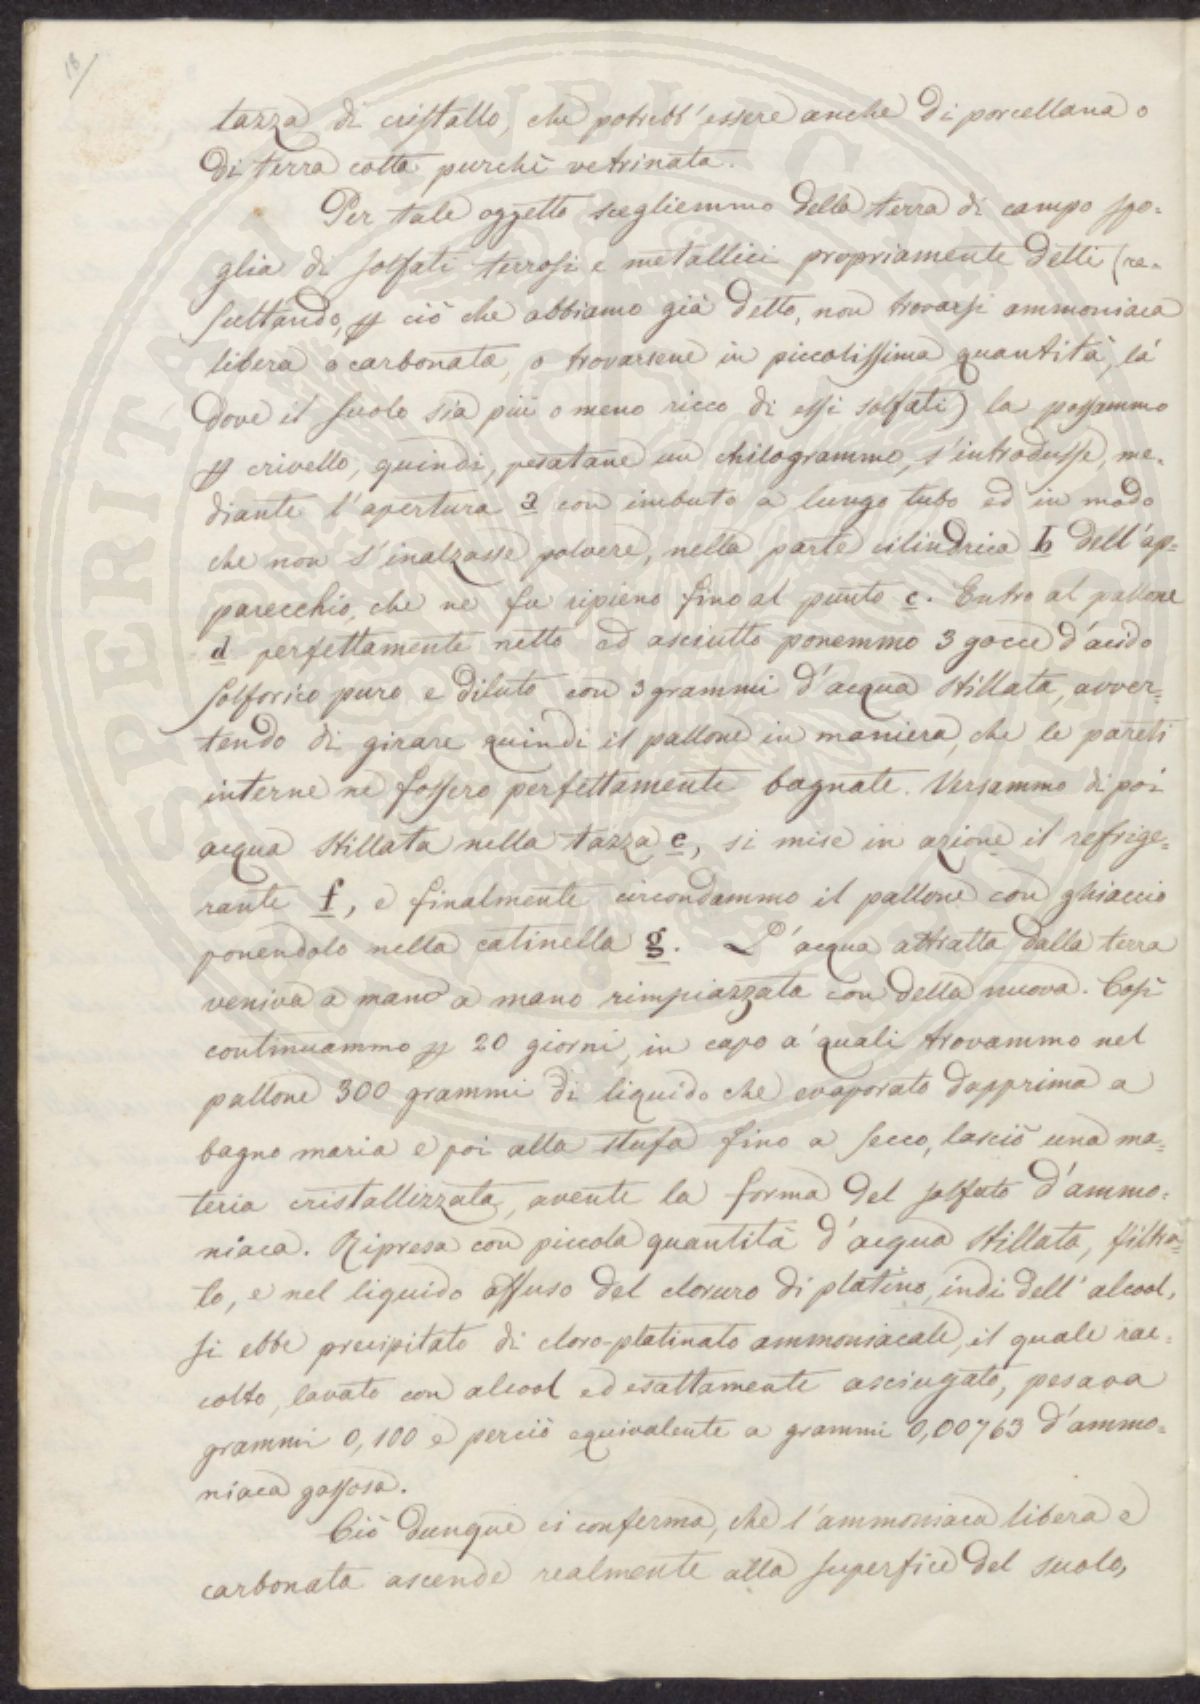 18/
tazza di cristallo, che potrebb'essere anche di porcellana o
di terra cotta purchè vetrinata.
Per tale oggetto scegliemmo della terra di campo spo-
glia di solfati terrosi e metallici propriamente detti (re-
sultando, p ciò che abbiamo già detto, non trovarsi ammoniaca
libera o carbonata, o trovarsene in piccolissima quantità, là
dove il suolo sia più o meno ricco di essi solfati) la passammo
p crivello, quindi, pesatane un chilogrammo, s'introdusse, me-
diante l'apertura a con imbuto a lungo tubo ed in modo
che non s'inalzasse polvere, nella parte cilindrica b dell'ap=
parecchio, che ne fu ripieno fino al punto c. Entro al pallone
d perfettamente netto ed asciutto ponemmo 3 gocce d'acido
solforico puro e diluto con 3 grammi d'acqua stillata, avver=
tendo di girare quindi il pallone in maniera, che le pareti
interne ne fossero perfettamente bagnate. Versammo di poi
acqua stillata nella tazza e, si mise in azione il refrige=
rante f, e finalmente circondammo il pallone con ghiaccio
ponendolo nella catinella g. L'acqua attratta dalla terra
veniva a mano a mano rimpiazzata con della nuova. Così
continuammo p 20 giorni, in capo a' quali trovammo nel
pallone 300 grammi di liquido che evaporato dapprima a
bagno maria e poi alla stufa fino a secco, lasciò una ma=
teria cristallizzata, avente la forma del solfato d'ammo=
niaca. Ripresa con piccola quantità d'acqua stillata, filtra=
to, e nel liquido affuso del cloruro di platino, indi dell'alcool,
si ebbe precipitato di cloro-platinato ammoniacale, il quale rac=
colto, lavato con alcool ed esattamente asciugato, pesava
grammi 0,100 e perciò equivalente a grammi 0,00763 d'ammo=
niaca gassosa.
Ciò dunque ci conferma, che l'ammoniaca libera e
carbonata ascende realmente alla superficie del suolo,